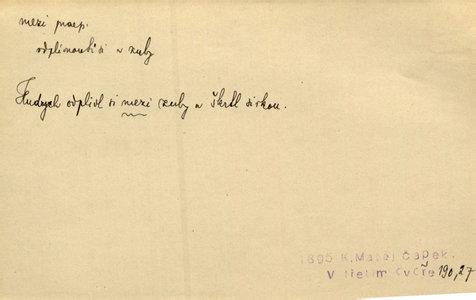 mezi praep.
odplivnouti si m. zuby
Hudrych odplivl si mezi zuby a škrtl sirkou.
1895 K. Matěj Čapek.
V třetím dvoře 190,27